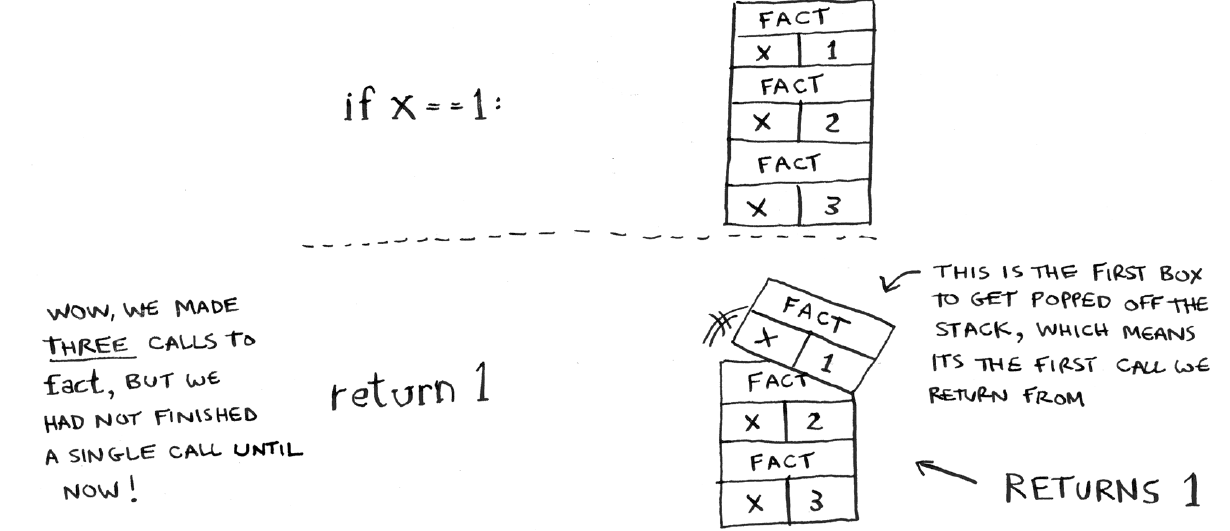 if x==1:
FACT
X 1
FACT
X 2
FACT
X 3
WOW, WE MADE
THREE CALLS TO
fact, BUT WE
HAD NOT FINISHED
A SINGLE CALL UNTIL
NOW!
return 1
FACT
X 1
FACT
X 2
FACT
X 3
THIS IS THE FIRST BOX
TO GET POPPED OFF THE
STACK, WHICH MEANS
ITS THE FIRST CALL WE
RETURN FROM
RETURNS 1